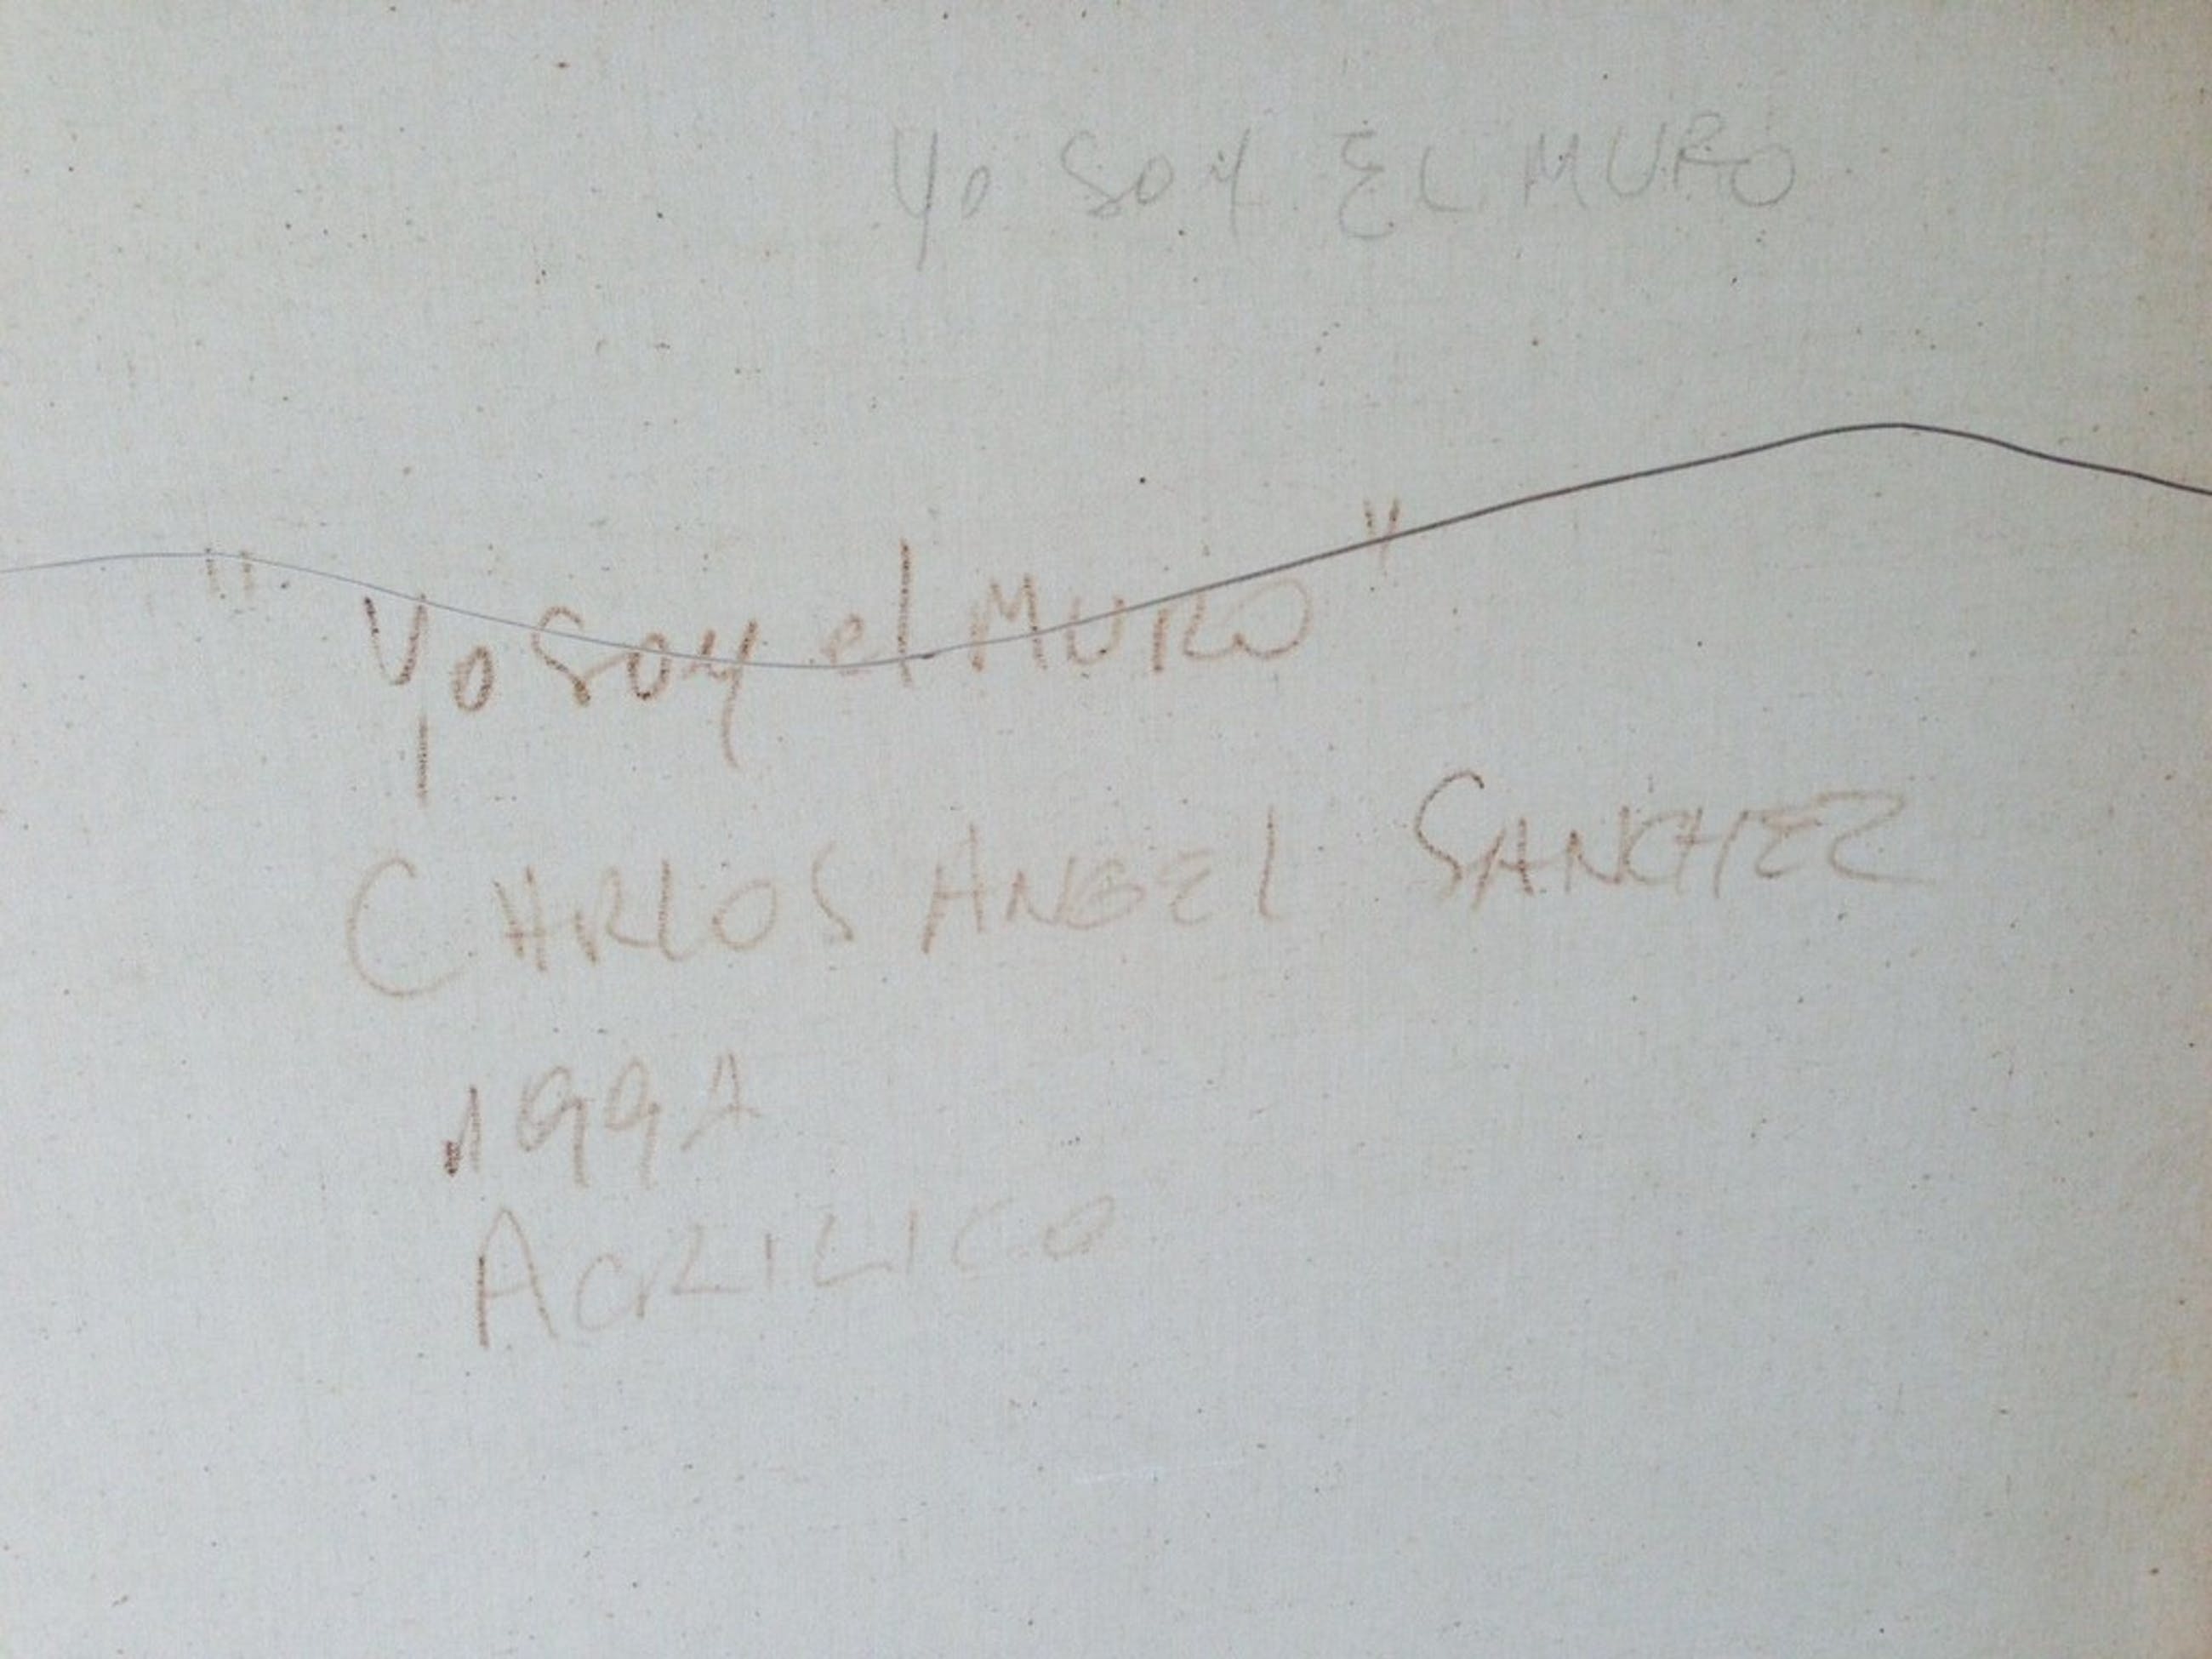 Yo SOY EL MURO
"Yo Soy el MURO"
CARLOS ANGEL SANCHEZ
1991
ACRILICO